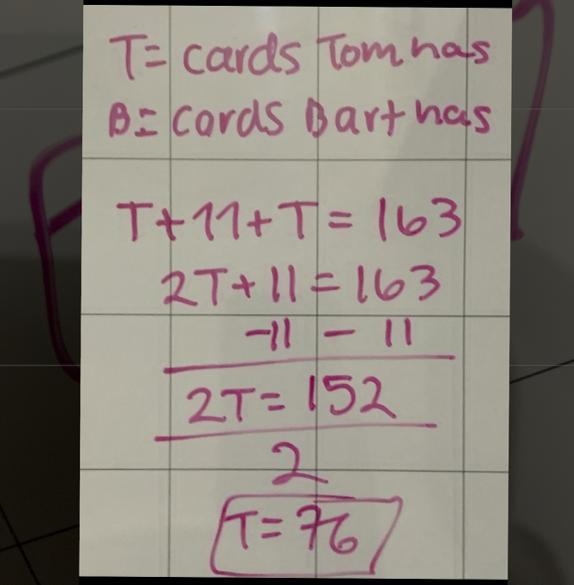 T= cards Tom has
B= cards Bart has
T+11+T=163
2T+11=163
-11 - 11
2T=152
2
T=76